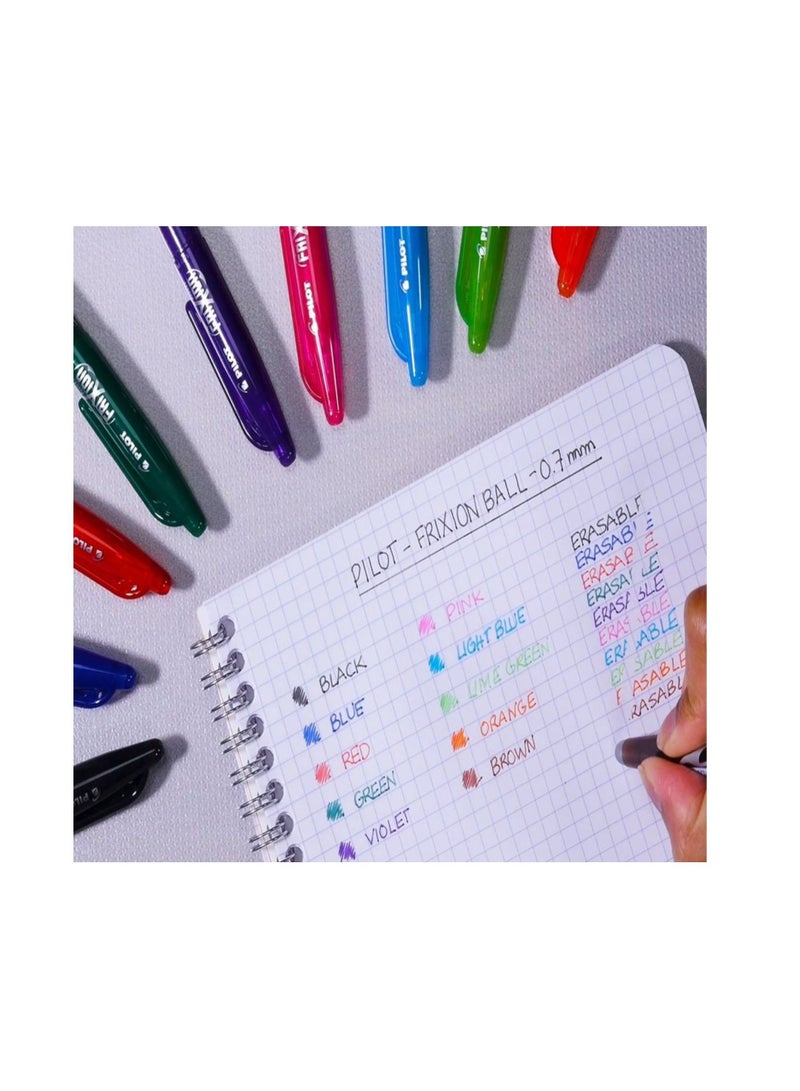 FRIXION
PILOT
FRIXION
PILOT
FRIX
PILOT
PILOT
PI
PILOT
PIL
PILOT - FRIXION BALL - 0.7 mm
BLACK
BLUE
RED
GREEN
VIOLET
PINK
LIGHT BLUE
LIME GREEN
ORANGE
BROWN
ERASABLE
ERASABLE
ERASABLE
ERASABLE
ERASABLE
ERASABLE
ERASABLE
ERASABLE
ERASABLE
ERASABLE